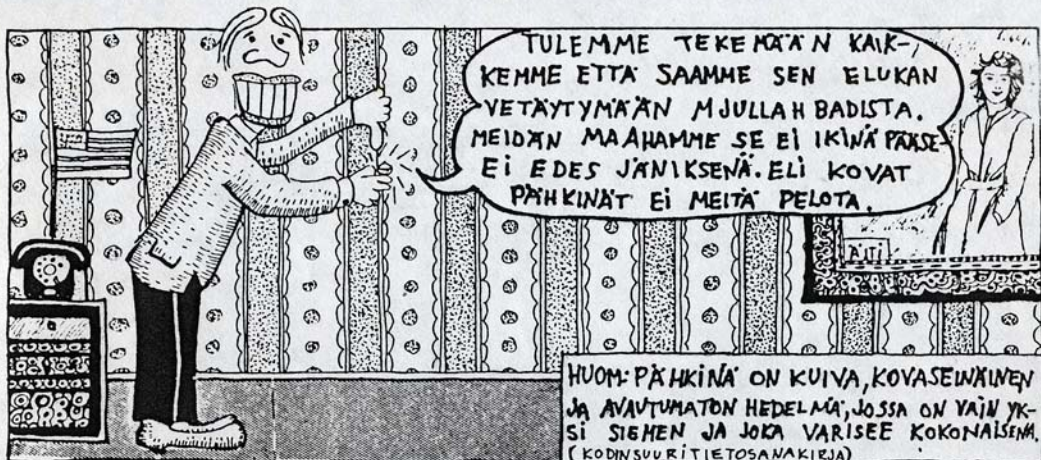 TULEMME TEKEMÄÄN KAIK-
KEMME ETTÄ SAAMME SEN ELUKAN
VETÄYTYMÄÄN MJULLAHBADISTA.
MEIDÄN MAAHAMME SE EI IKINÄ PÄÄSE-
EI EDES JÄNIKSENÄ. ELI KOVAT
PÄHKINÄT EI MEITÄ PELOTA.
ÄITI
HUOM: PÄHKINÄ ON KUIVA, KOVASEINÄINEN
JA AVAUTUMATON HEDELMÄ, JOSSA ON VAIN YK-
SI SIEMEN JA JOKA VARISEE KOKONAISENA.
(KODIN SUURI TIETOSANAKIRJA)